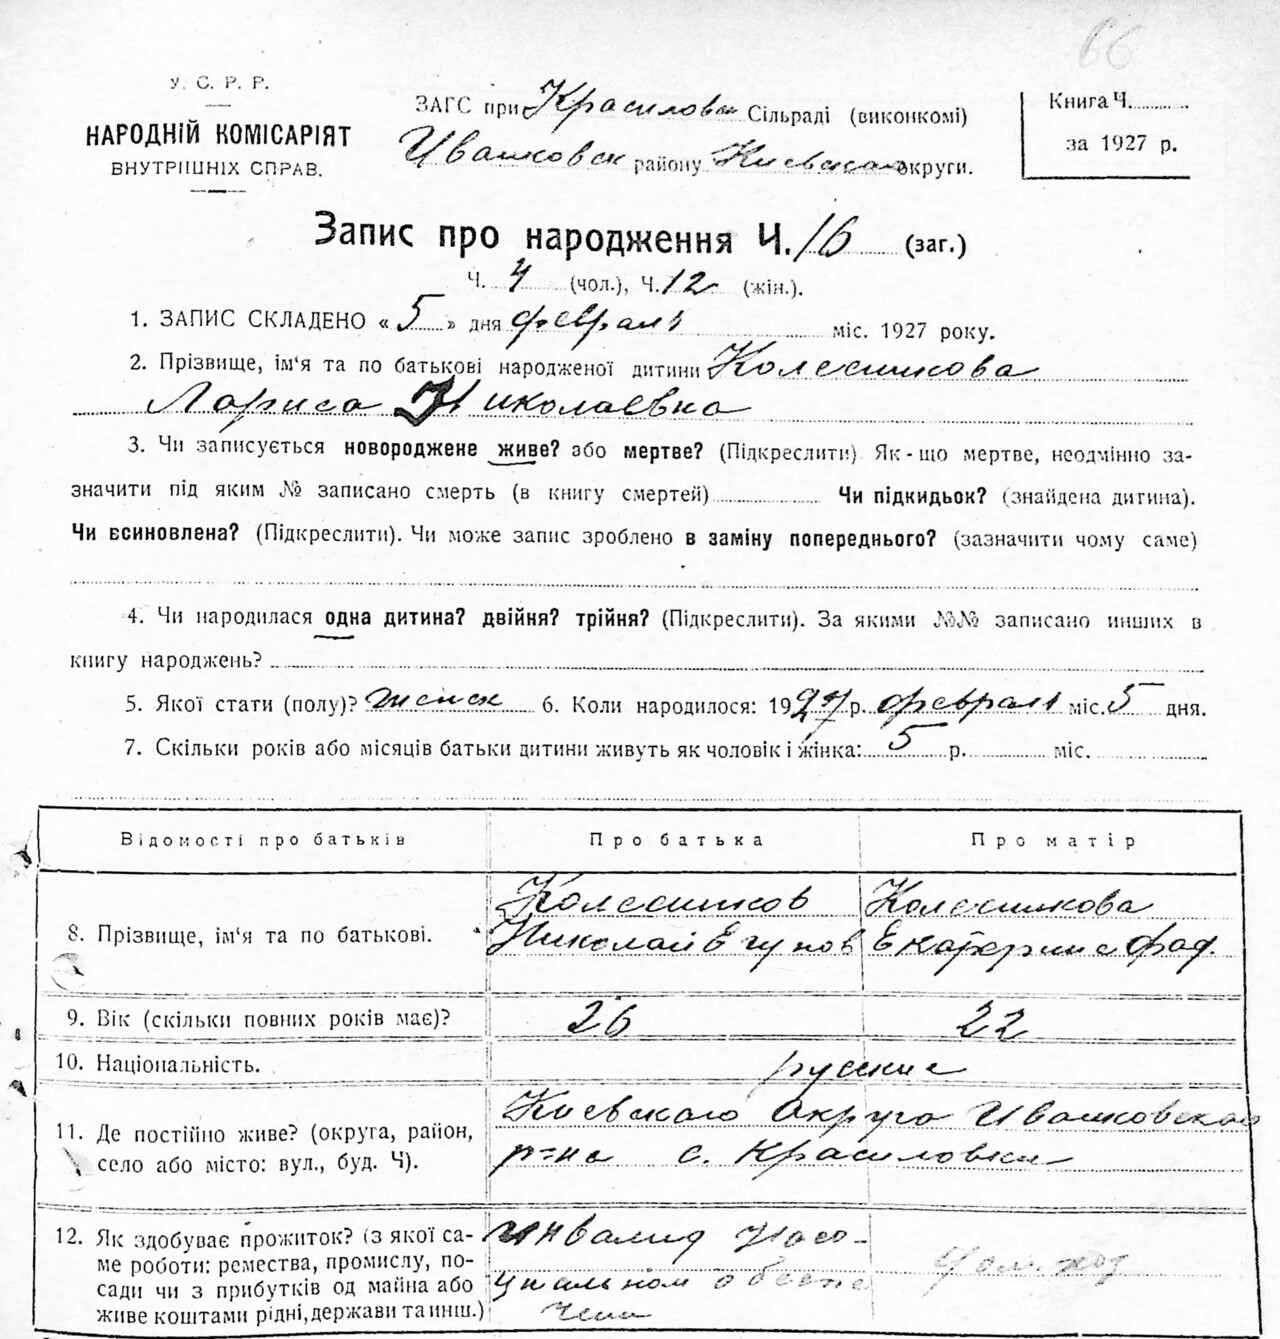 66
У. С. Р. Р.
НАРОДНІЙ КОМІСАРІЯТ
ВНУТРІШНІХ СПРАВ.
ЗАГС при Красиловск Сільраді (виконкомі)
Ивановск району Киевской округи.
Книга Ч.
за 1927 р.
Запис про народження Ч. 16 (заг.)
Ч. 4 (чол.), Ч. 12 (жін.).
1. ЗАПИС СКЛАДЕНО « 5 » дня февраля міс. 1927 року.
2. Прізвище, ім'я та по батькові народженої дитини Колесникова
Лариса Николаевна
3. Чи записується новороджене живе? або мертве? (Підкреслити) Як-що мертве, неодмінно за-
значити під яким № записано смерть (в книгу смертей) Чи підкидьок? (знайдена дитина).
Чи всиновлена? (Підкреслити). Чи може запис зроблено в заміну попереднього? (зазначити чому саме)
4. Чи народилася одна дитина? двійня? трійня? (Підкреслити). За якими №№ записано инших в
книгу народжень?
5. Якої стати (полу)? женск 6. Коли народилося: 1927 р. февраля міс. 5 дня.
7. Скільки років або місяців батьки дитини живуть як чоловік і жінка: 5 р. міс.
Відомості про батьків Про батька Про матір
8. Прізвище, ім'я та по батькові.
Колесников
Николай Егунов
Колесникова
Екатерина Фад.
9. Вік (скільки повних років має)? 26 22
10. Національність. русские
11. Де постійно живе? (округа, район,
село або місто: вул., буд. Ч).
Киевского округа Ивановского
р-на с. Красиловки
12. Як здобуває прожиток? (з якої са-
ме роботи: ремества, промислу, по-
сади чи з прибутків од майна або
живе коштами рідні, держави та инш.)
инвалид
Дом. хоз